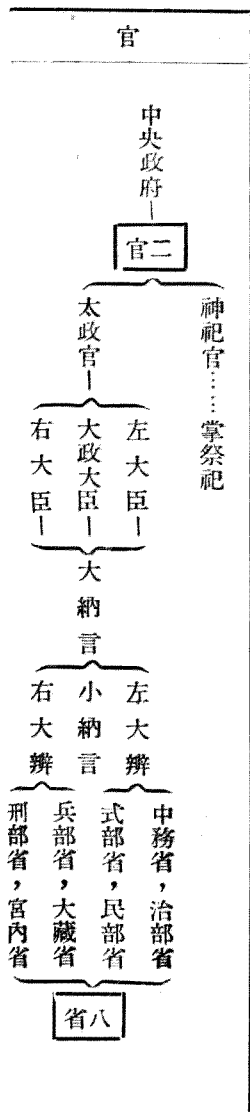 官
中央政府
二官
神祀官……掌祭祀
太政官
左大臣
大政大臣
右大臣
大納言
左大辨
小納言
右大辨
中務省,治部省
式部省,民部省
兵部省,大藏省
刑部省,宮內省
八省